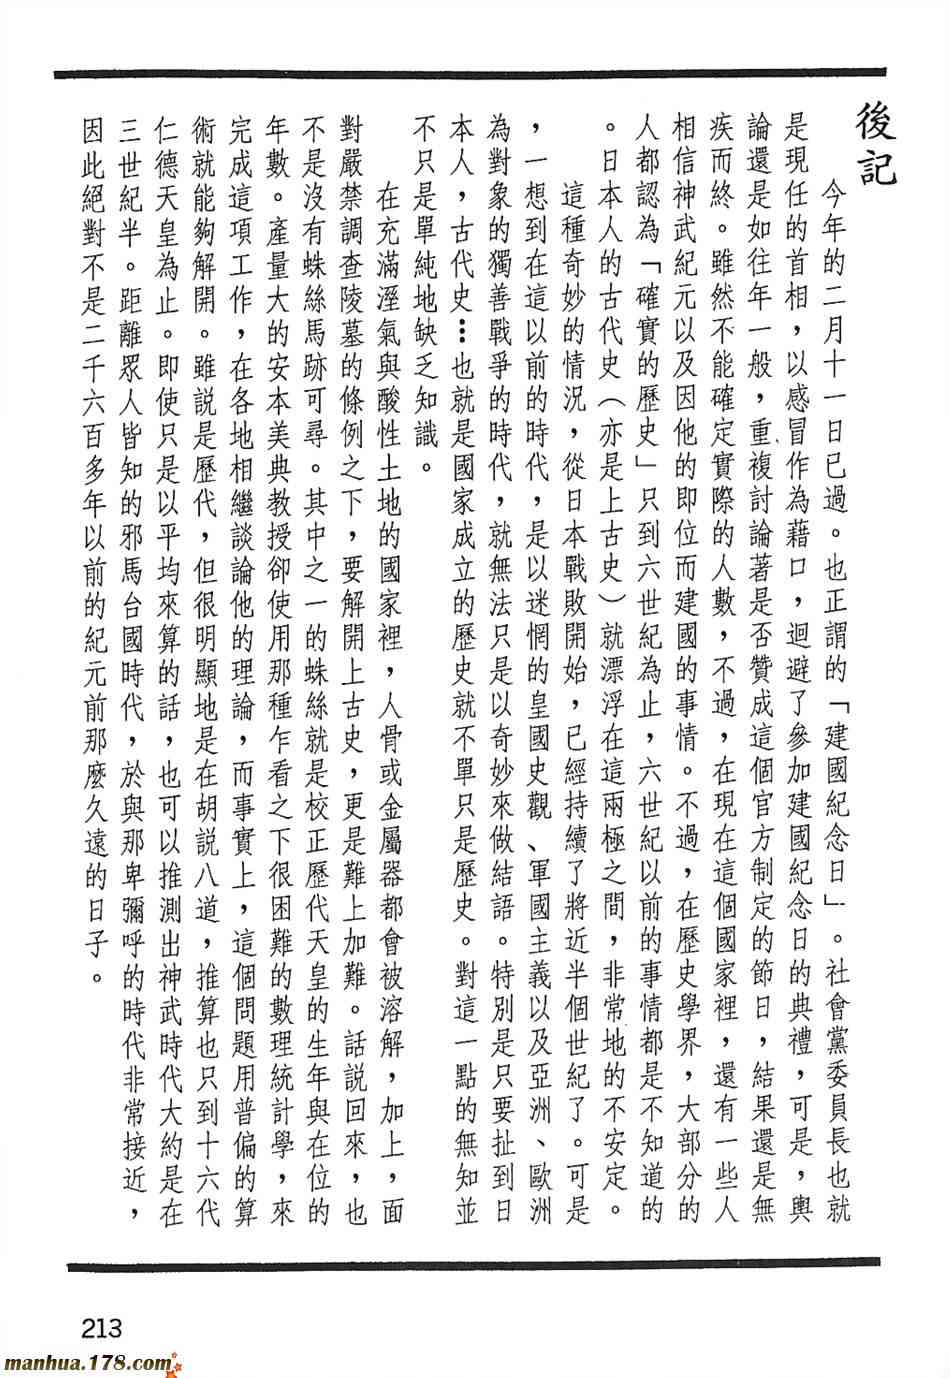 後記
今年的二月十一日已過。也正謂的「建國紀念日」。社會黨委員長也就
是現任的首相，以感冒作為藉口，迴避了參加建國紀念日的典禮，可是，輿
論還是如往年一般，重複討論著是否贊成這個官方制定的節日，結果還是無
疾而終。雖然不能確定實際的人數，不過，在現在這個國家裡，還有一些人
相信神武紀元以及因他的即位而建國的事情。不過，在歷史學界，大部分的
人都認為「確實的歷史」只到六世紀為止，六世紀以前的事情都是不知道的
。日本人的古代史（亦是上古史）就漂浮在這兩極之間，非常地的不安定。
這種奇妙的情況，從日本戰敗開始，已經持續了將近半個世紀了。可是
，一想到在這以前的時代，是以迷惘的皇國史觀、軍國主義以及亞洲、歐洲
為對象的獨善戰爭的時代，就無法只是以奇妙來做結語。特別是只要扯到日
本人，古代史…也就是國家成立的歷史就不單只是歷史。對這一點的無知並
不只是單純地缺乏知識。
在充滿溼氣與酸性土地的國家裡，人骨或金屬器都會被溶解，加上，面
對嚴禁調查陵墓的條例之下，要解開上古史，更是難上加難。話說回來，也
不是沒有蛛絲馬跡可尋。其中之一的蛛絲就是校正歷代天皇的生年與在位的
年數。產量大的安本美典教授卻使用那種乍看之下很困難的數理統計學，來
完成這項工作，在各地相繼談論他的理論，而事實上，這個問題用普偏的算
術就能夠解開。雖說是歷代，但很明顯地是在胡說八道，推算也只到十六代
仁德天皇為止。即使只是以平均來算的話，也可以推測出神武時代大約是在
三世紀半。距離眾人皆知的邪馬台國時代，於與那卑彌呼的時代非常接近，
因此絕對不是二千六百多年以前的紀元前那麼久遠的日子。
213
manhua.178.com